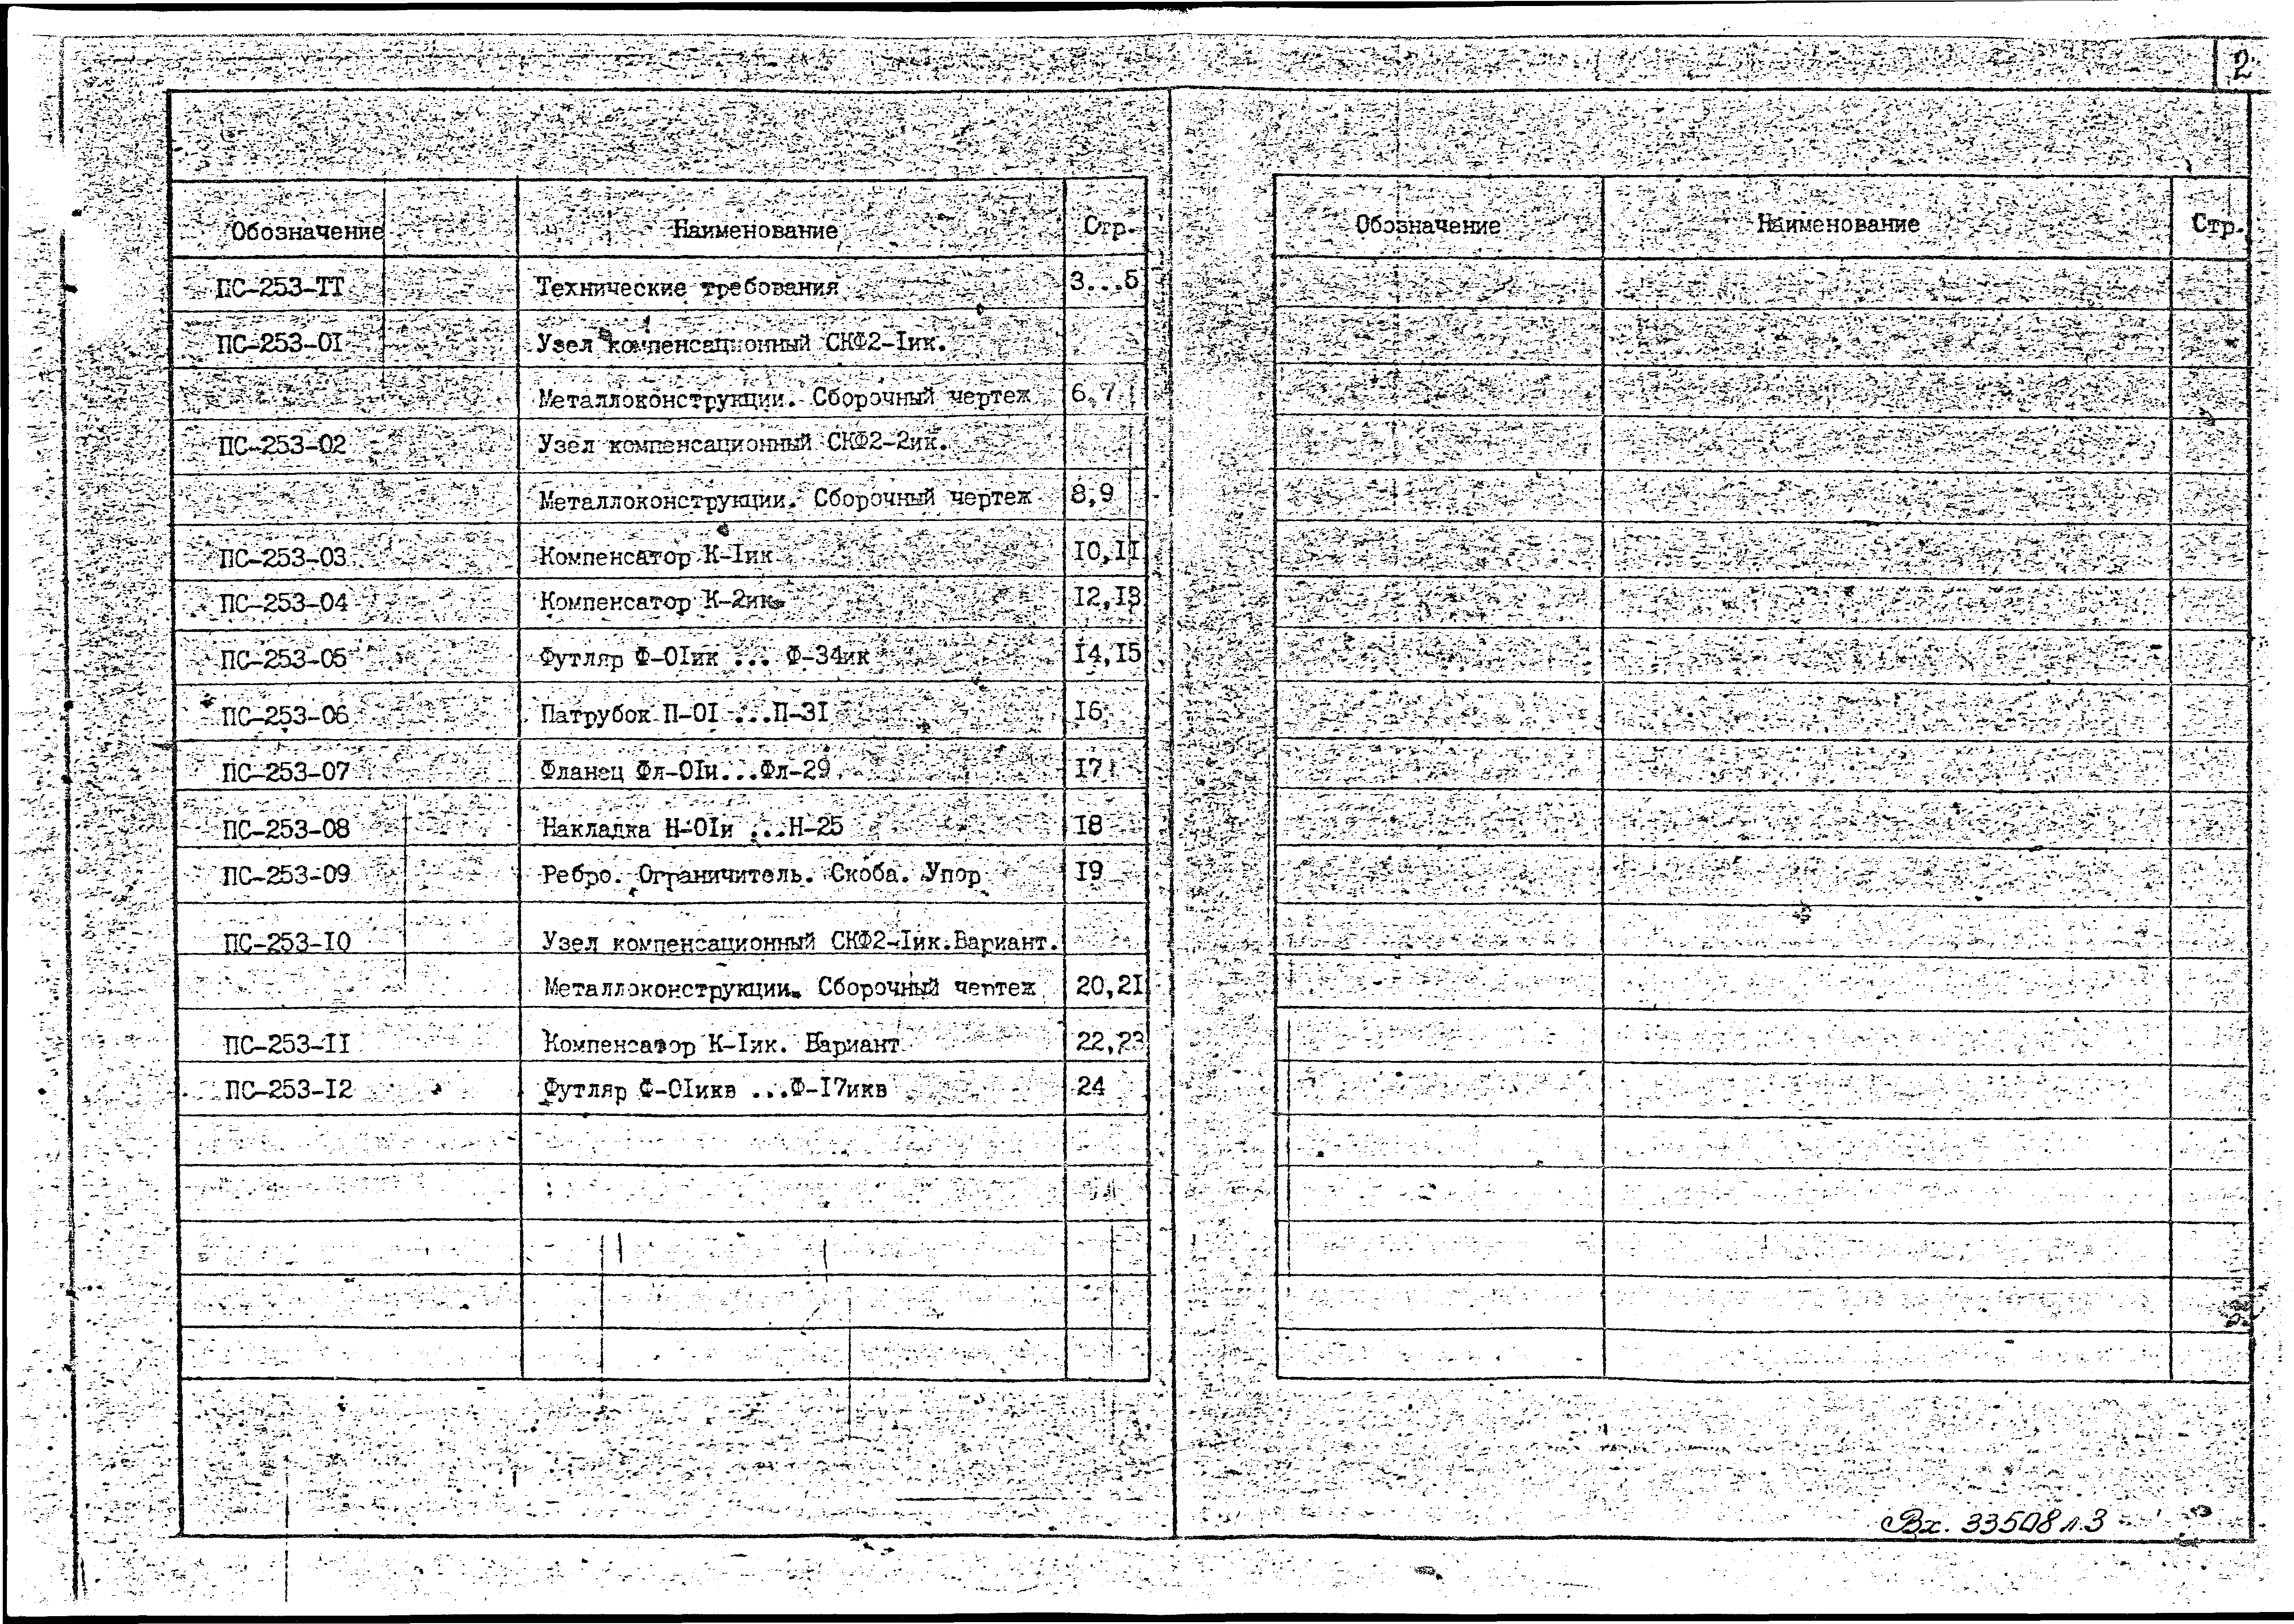 2
Обозначение Наименование Стр.
ПС-253-ТТ Технические требования 3...5
ПС-253-01 Узел компенсационный СКФ2-1ик.
Металлоконструкции. Сборочный чертеж 6,7
ПС-253-02 Узел компенсационный СКФ2-2ик.
Металлоконструкции. Сборочный чертеж 8,9
ПС-253-03 Компенсатор К-1ик 10,11
ПС-253-04 Компенсатор К-2ик 12,13
ПС-253-05 Футляр Ф-01ик ... Ф-34ик 14,15
ПС-253-06 Патрубок П-01 ...П-31 16
ПС-253-07 Фланец Фл-01и...Фл-29 17
ПС-253-08 Накладка Н-01и ...Н-25 18
ПС-253-09 Ребро. Ограничитель. Скоба. Упор 19
ПС-253-10 Узел компенсационный СКФ2-1ик.Вариант.
Металлоконструкции. Сборочный чертеж 20,21
ПС-253-11 Компенсатор К-1ик. Вариант 22,23
ПС-253-12 Футляр Ф-01икв ...Ф-17икв 24
Обозначение Наименование Стр.
Вх. 33508 л.3